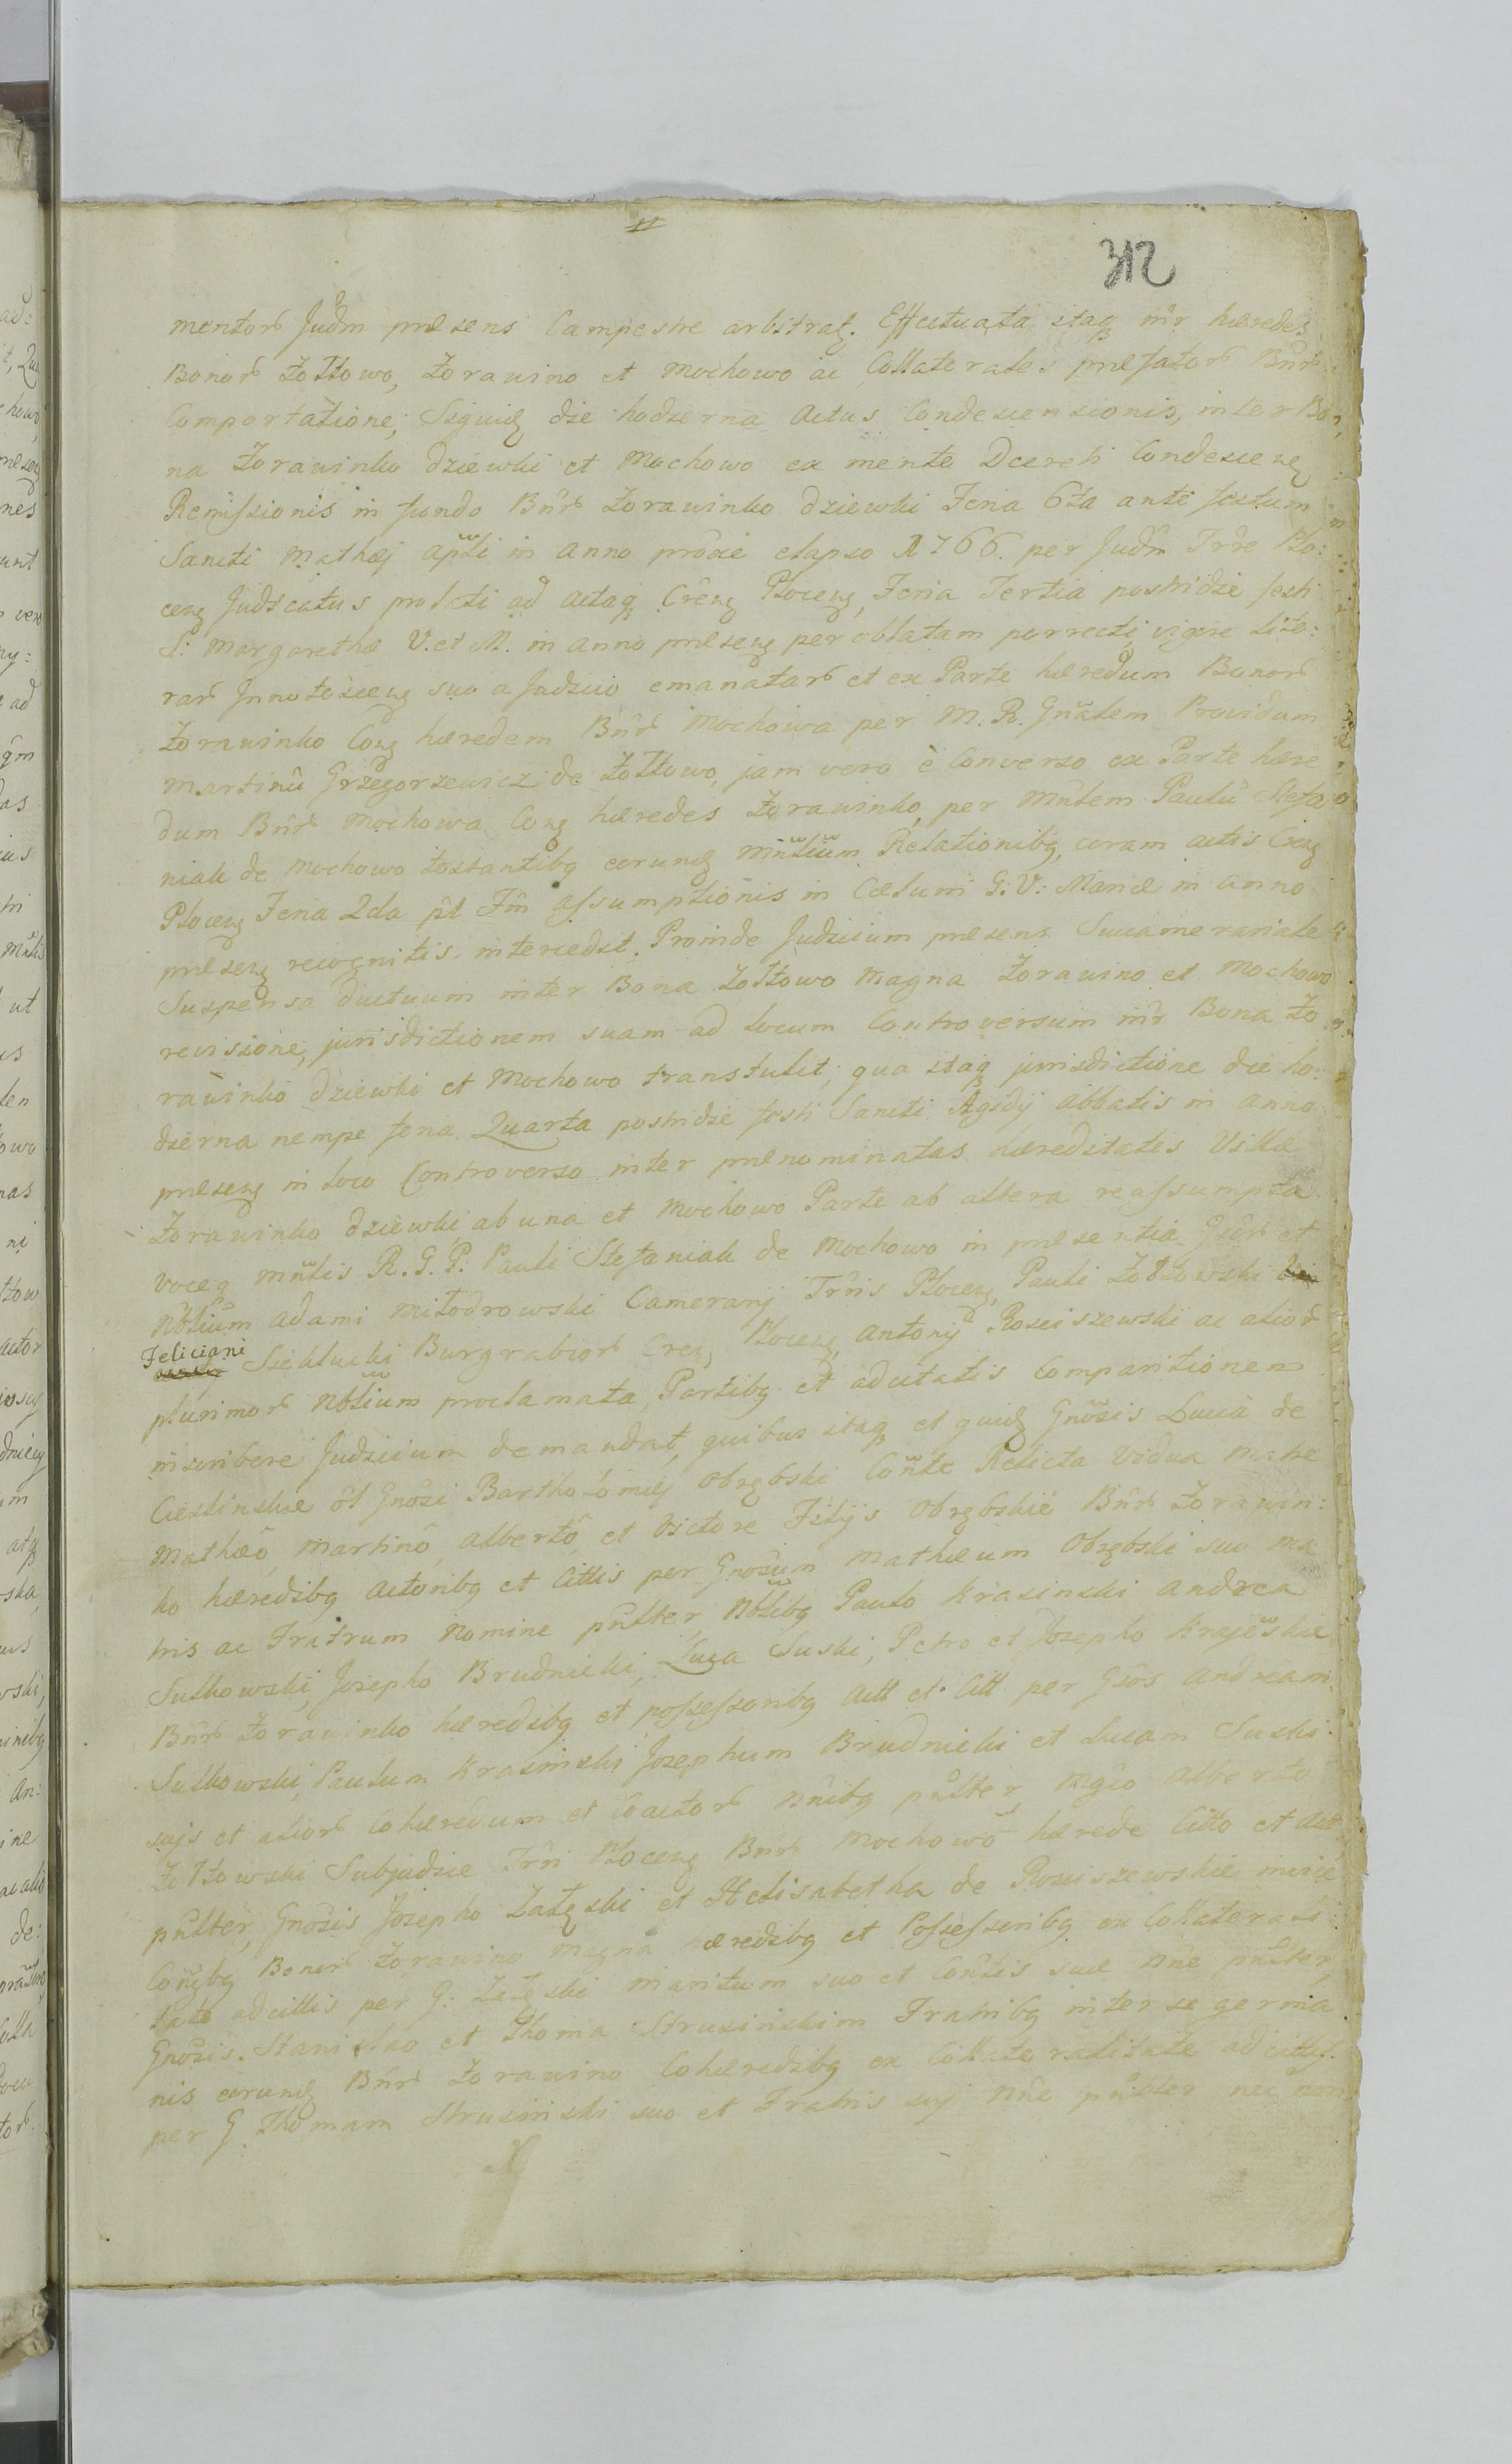 312
mentorũ Judm præsens Campestre arbitrat. Effectuata itaq inr hæredes
Bonorũ Zołtowo, Zorawino et Mochowo ac Collaterales præfatorũ Bnrũ
Comportatione, Siquid die hodierna Actus Condescensionis, inter Bo,
na Zorawinko dziewki et Mochowo ex mente Dcreti Condescens
Remissionis in fundo Bnrũ Zorawinko dziewki Feria 6ta ante festum
Sancti Mathæj aptli in anno proxie elapso 1766. per Judm Trre Plo:
cens Judicatus prolati ad actaq Crens Plocens, Feria Tertia postridie festi
S: Margarethæ V. et M. in anno præsens per oblatam porrecti, vigore Lite:
rarũ Innotescens suo a Judicio emanatarũ et ex Parte hæredum Bonorũ
Zorawinko Cong hæredem Bnrũ Mochowa per M. R. Gnalem Providum
Martinũ Grzegorzewicz de Zołtowo, jam vero è Converso ex Parte hære
dum Bnrũ Mochowa Cong hæredes Zorawinko, per Mntem Paulũ Stefa
niak de Mochowo tostantibq eorund Mntlium Relationibq, coram actis Crens
Plocens Feria 2da pt Fm assumptionis in Cælum G: V: Mariæ in anno
præsens recognitis. intercedit. Proinde Judicium præsens Succamerariale
Suspensa ductuum inter Bona Zołtowo Magna Zorawino et Mochowo
revisione, jurisdictionem suam ad locum Controversum inr Bona Zo
rawinko dziewki et Mochowo transtulit, qua itaq jurisdictione die ho:
dierna nempe feria Quarta postridie festi Sancti Ægidij abbatis in anno
præsens in loco Controverso inter prænominatas hæreditatis Villæ
Zorawinko dziewki, ab una et Mochowo Parte ab altera reassumpta
voceq Mntlis R. G. P. Pauli Stefaniak de Mochowo in præsentia Gsorũ et
Nbtlium Adami Miłodrowski Camerarij Trris Plocens, Pauli Zołtowski
Feliciani Sieklucki Burgrabiorũ Crens Plocens, Antonij Rosciszewski ac aliorũ
plurimorũ Nbtlium proclamata, Partibq et adcitatis Comparitionem
inscribere Judicium demandat, quibus itaq et quid Gnosis Lucia de
Cieslinskie ol Gnosi Bartholomej Obrębski Conte Relicta Vidua Matre
Mathæo, Martino, Alberto, et Victore Filijs Obrębskie Bnrũ Zorawin:
ko hæredibq actoribq et Cittis per Gnosum Mathæum Obrębski suo Ma
tris ac Fratrum Nomine pnlter, Nbtlibq Paulo Krasinski Andrea
Sulkowski, Josepho Brudnicki, Luca Suski, Petro et Josepho Krajewskie
Bnrũ Zorawinko hæredibq et possessoribq Actt et Citt per Gsos Andream
Sulkowski, Paulum Krasinski Josephum Brudnicki et Lucam Suski
sujs et aliorũ Cohæredum et Coactorũ Nnibq pnlter, Mgco Alberto
Zołtowski Subjudice Trri Plocens Bnrũ Mochowo hærede Citto et Actt
pnlter, Gnosis Josepho Załęski et Helisabetha de Rosciszewskie invice
Conibq Bonorũ Zorawino Magna hæredibq et Possessoribq ex Collaterali
tate adcittis per G: Załęski maritum suo et Contis suæ nne pnlter,
Gnosis. Stanislao et Thoma Strusinskim Fratribq inter se germa
nis eorund Bnrũ Zorawino Cohæredibq ex Collateralitate adcittis.
per G. Thomam Strusinski suo et Fratris suj nne pnlter nec non